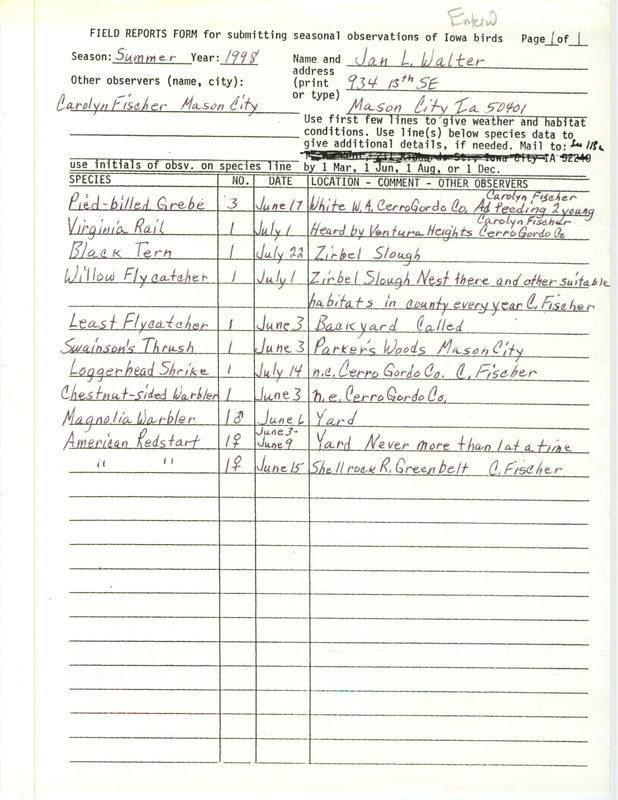 Entered
FIELD REPORTS FORM for submitting seasonal observations of Iowa birds Page 1 of 1
Season: Summer Year: 1998
Name and Jan L. Walter
address
(print 934 13th SE
or type)
Mason City Ia 50401
Other observers (name, city):
Carolyn Fischer Mason City
Use first few lines to give weather and habitat
conditions. Use line(s) below species data to
give additional details, if needed. Mail to:
Iowa City IA 52240
by 1 Mar, 1 Jun, 1 Aug, or 1 Dec.
use initials of obsv. on species line
SPECIES NO. DATE LOCATION - COMMENT - OTHER OBSERVERS
Carolyn Fischer
Pied-billed Grebe 3 June 17 White W.A. Cerro Gordo Co. Ad feeding 2 young
Carolyn Fischer
Virginia Rail 1 July 1 Heard by Ventura Heights Cerro Gordo Co
Black Tern 1 July 22 Zirbel Slough
Willow Flycatcher 1 July 1 Zirbel Slough Nest there and other suitable
habitats in county every year C. Fischer
Least Flycatcher 1 June 3 Backyard Called
Swainson's Thrush 1 June 3 Parker's Woods Mason City
Loggerhead Shrike 1 July 14 n.c. Cerro Gordo Co. C. Fischer
Chestnut-sided Warbler 1 June 3 n.e. Cerro Gordo Co.
Magnolia Warbler 1♂ June 6 Yard
June 3-
American Redstart 1♀ June 9 Yard Never more than 1 at a time
" " 1♀ June 15 Shellrock R. Greenbelt C. Fischer